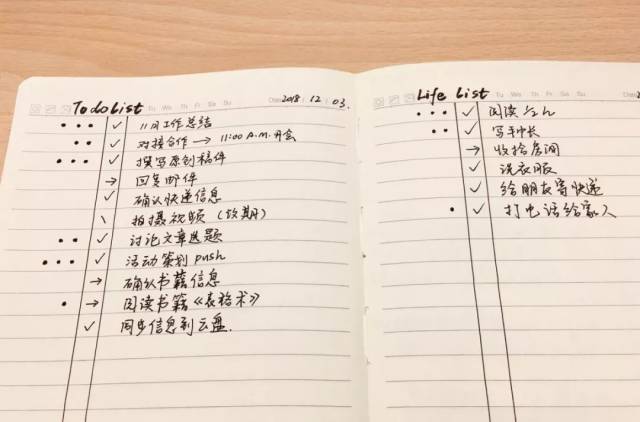 Todo List Tu We Th Fr Sa Su Date 2018 / 12 / 03.
••• ✓ 11月工作总结
•• ✓ 对接合作 → 11:00 A.M. 开会
••• ✓ 撰写原创稿件
→ 回复邮件
✓ 确认快递信息
\ 拍摄视频（改期）
•• ✓ 讨论文章选题
••• ✓ 活动策划 push
→ 确认书籍信息
• → 阅读书籍《表格术》
✓ 同步信息到云盘.
Life List Tu We Th Fr Sa Su
••• ✓ 阅读 1/2 h
•• ✓ 写手帐
→ 收拾房间
✓ 洗衣服
✓ 给朋友寄快递
• ✓ 打电话给家人